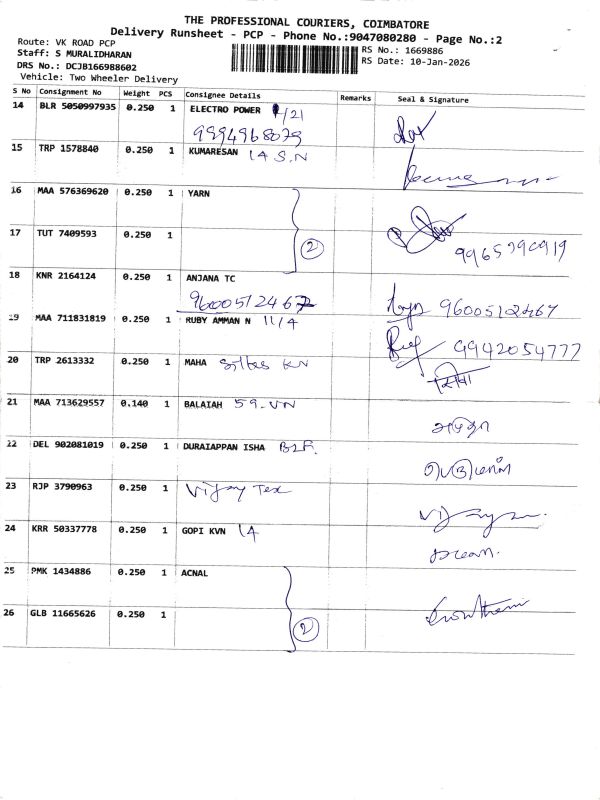 THE PROFESSIONAL COURIERS, COIMBATORE
Delivery Runsheet - PCP - Phone No.:9047080280 - Page No.:2
Route: VK ROAD PCP
Staff: S MURALIDHARAN
DRS No.: DCJB166988602
Vehicle: Two Wheeler Delivery
RS No.: 1669886
RS Date: 10-Jan-2026
S No Consignment No Weight PCS Consignee Details Remarks Seal & Signature
14 BLR 5050997935 0.250 1 ELECTRO POWER /21
9994968079
15 TRP 1578840 0.250 1 KUMARESAN 14 S.N
16 MAA 576369620 0.250 1 YARN
17 TUT 7409593 0.250 1 2
18 KNR 2164124 0.250 1 ANJANA TC
9600512467 9600512467
19 MAA 711831819 0.250 1 RUBY AMMAN N 11/4
9942054777
20 TRP 2613332 0.250 1 MAHA KN
21 MAA 713629557 0.140 1 BALAIAH 59-VN
22 DEL 902081019 0.250 1 DURAIAPPAN ISHA
23 RJP 3790963 0.250 1 Vijay Tex
24 KRR 50337778 0.250 1 GOPI KVN 14
25 PMK 1434886 0.250 1 ACNAL
26 GLB 11665626 0.250 1 2